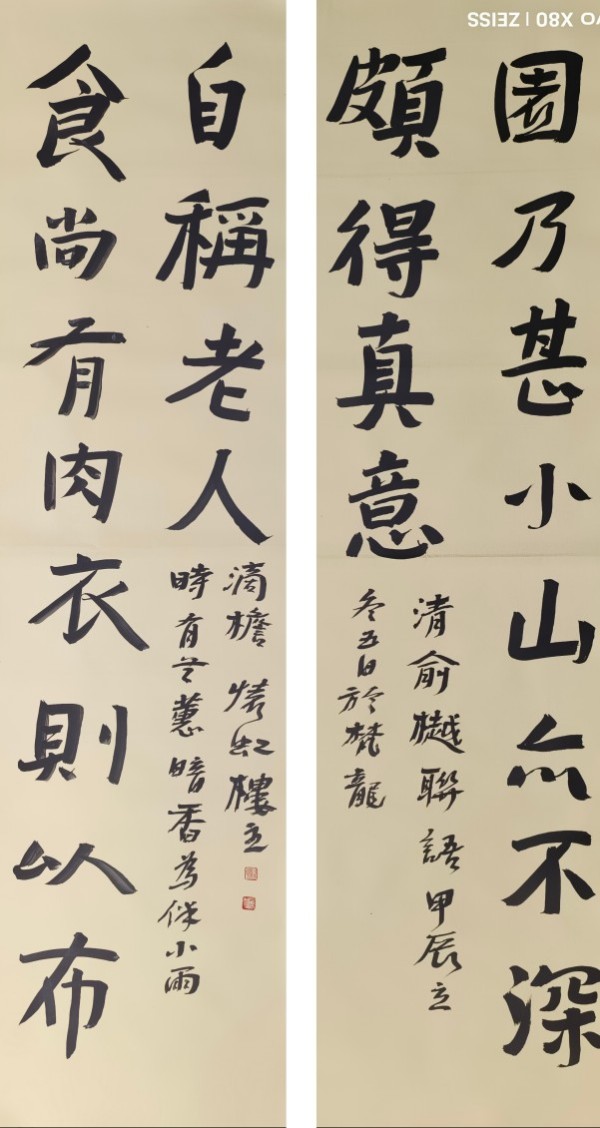 園乃甚小山亦不深
頗得真意
清俞樾聯語甲辰立
冬五日於梵龍
食尚有肉衣則以布
自稱老人
時有兰蕙暗香為伴小雨
滴檐虹樓
X80 | ZEISS